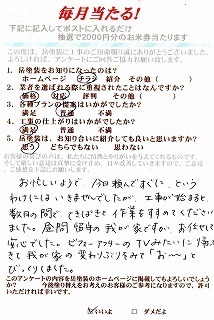 毎月当たる!
下記に記入してポストに入れるだけ
抽選で2000円分のお米券当たります
この度は、岳塗装に工事のご用命賜り誠にありがとうございました。
よろしければ、アンケートにご協力お願い致します。
1. 岳塗装をお知りになったのは?
ホームページ チラシ 紹介 その他( )
2. 業者を選ばれる際に重視されたことはなんですか?
価格 対応 評判 その他( )
3. 各種プランの提案はいかがでしたか?
満足 普通 不満
4. 工事の仕上げはいかがでしたか?
満足 普通 不満
5. 岳塗装は、お知り合いに紹介しても良いと思いますか?
思う どちらでもない 思わない
お忙しいようで 今日頼んですぐに、という
わけにはいきませんでしたが、工事が始まると
数日の間で、てきぱきと作業をすすめてください
ました。昼間留守の我が家ですが、お任せして
安心でした。ビフォーアフターのTVみたいに帰
きて我が家の変わりぶりをみて「お〜〜」と
びっくりしました。
このアンケートの内容を岳塗装のホームページに掲載してもよろしいでしょう
か? 今後塗り替えをお考えのお客様のご参考になりますので、許可
いただければ幸いです。
いいよ ダメだよ